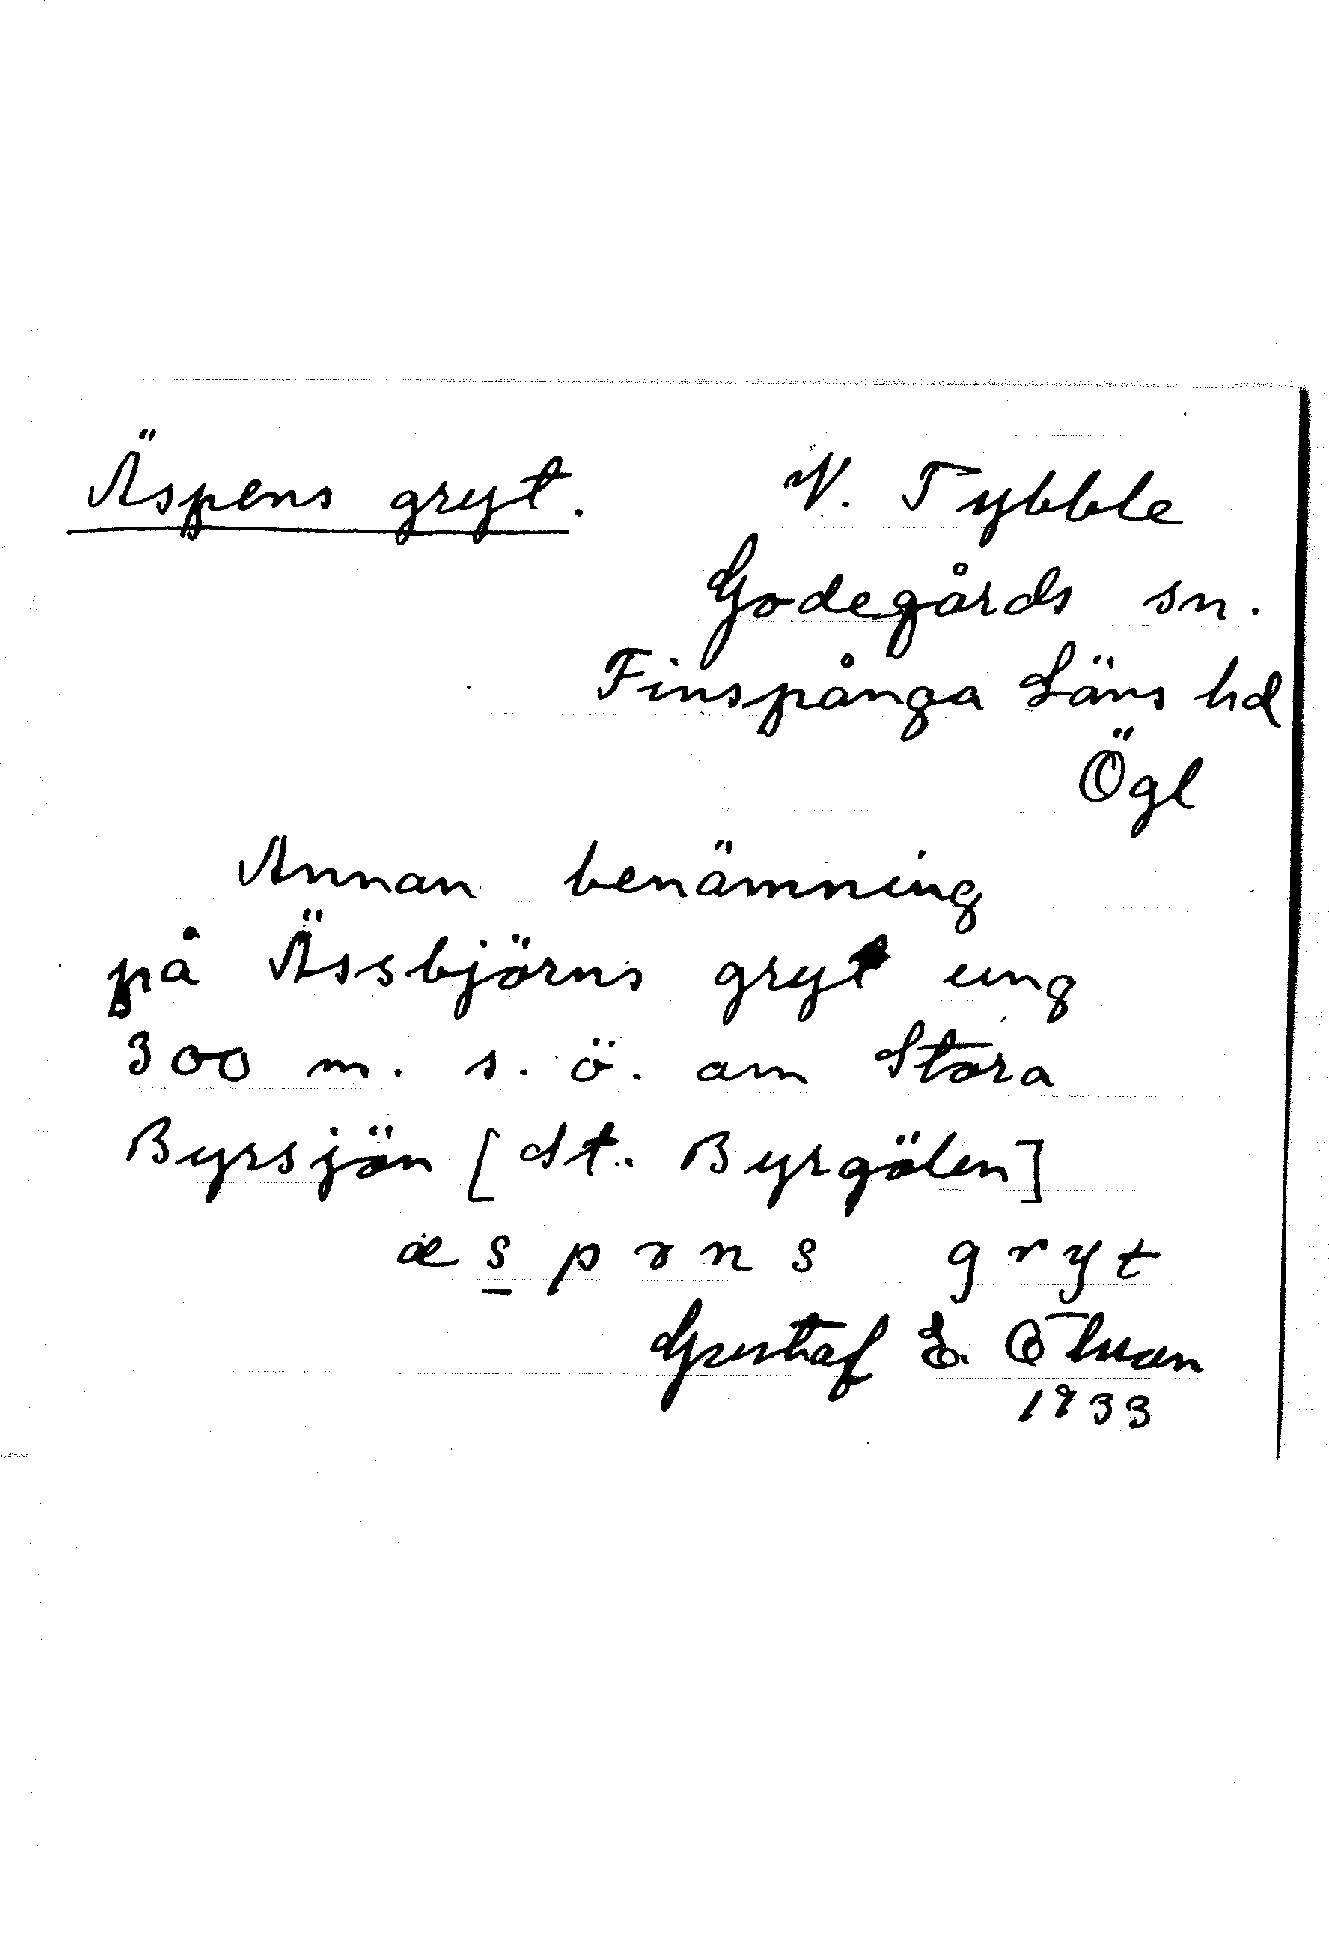 Äspens gryt.
N. Tybble
Godegårds sn.
Finspånga Läns hd
Ögl
Annan benämning
på Ässbjörns gryt ung
300 m. s. ö. om Stora
Byrsjön [St. Byrgölen]
æspɤns gryt
Gustaf E.
1933